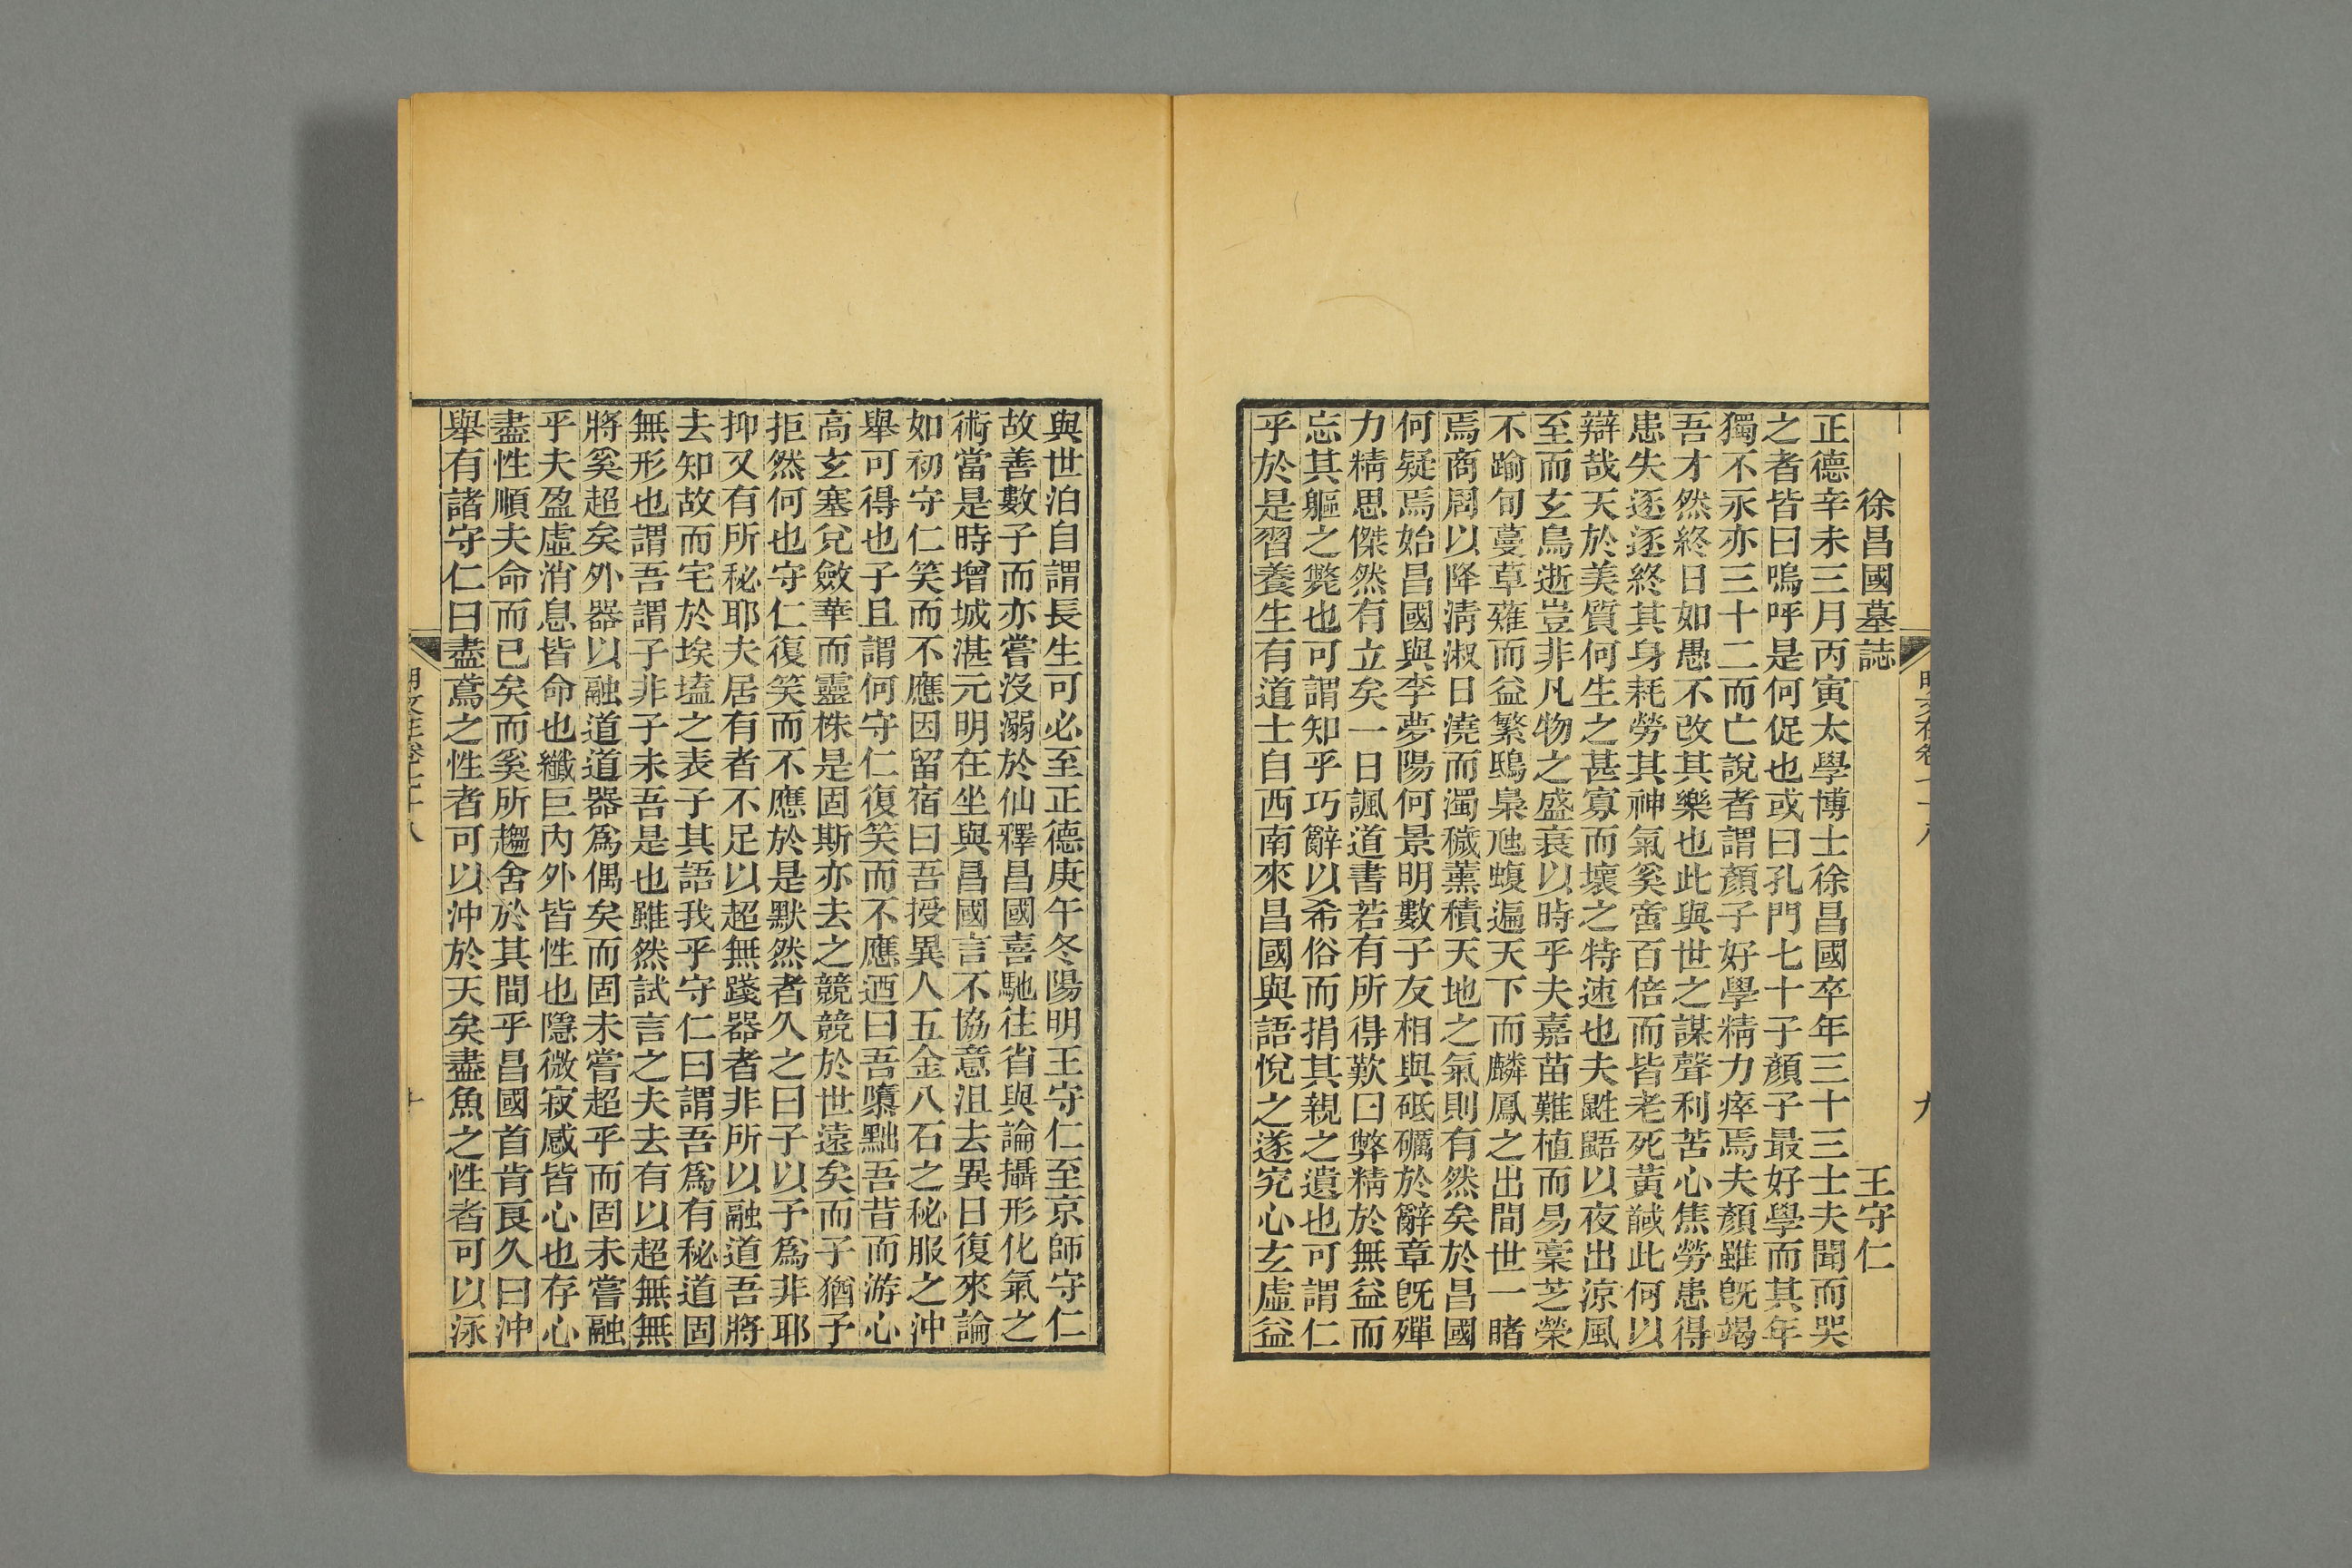 徐昌國墓誌 王守仁
正德辛未三月丙寅太學博士徐昌國卒年三十三士夫聞而哭
之者皆曰嗚呼是何促也或曰孔門七十子顏子最好學而其年
獨不永亦三十二而亡說者謂顏子好學精力瘁焉夫顏雖旣竭
吾才然終日如愚不改其樂也此與世之謀聲利苦心焦勞患得
患失逐逐終其身耗勞其神氣奚啻百倍而皆老死黃馘此何以
辯哉天於美質何生之甚寡而壞之特速也夫鼪鼯以夜出涼風
至而玄鳥逝豈非凡物之盛衰以時乎夫嘉苗難植而易槀芝榮
不踰旬蔓草薙而益繁鴟梟虺蝮遍天下而麟鳳之出間世一睹
焉商周以降清淑日澆而濁穢薰積天地之氣則有然矣於昌國
何疑焉始昌國與李夢陽何景明數子友相與砥礪於辭章旣殫
力精思傑然有立矣一日諷道書若有所得歎曰弊精於無益而
忘其軀之斃也可謂知乎巧辭以希俗而捐其親之遺也可謂仁
乎於是習養生有道士自西南來昌國與語悅之遂究心玄虛益
與世泊自謂長生可必至正德庚午冬陽明王守仁至京師守仁
故善數子而亦嘗沒溺於仙釋昌國喜馳往省與論攝形化氣之
術當是時增城湛元明在坐與昌國言不協意沮去異日復來論
如初守仁笑而不應因留宿曰吾授異人五金八石之秘服之沖
舉可得也子且謂何守仁復笑而不應迺曰吾隳黜吾昔而游心
高玄塞兌斂華而靈株是固斯亦去之競競於世遠矣而子猶予
拒然何也守仁復笑而不應於是默然者久之曰子以予爲非耶
抑又有所秘耶夫居有者不足以超無踐器者非所以融道吾將
去知故而宅於埃壒之表子其語我乎守仁曰謂吾爲有秘道固
無形也謂吾謂子非子未吾是也雖然試言之夫去有以超無無
將奚超矣外器以融道道器爲偶矣而固未嘗超乎而固未嘗融
乎夫盈虛消息皆命也纖巨內外皆性也隱微寂感皆心也存心
盡性順夫命而已矣而奚所趨舍於其間乎昌國首肯良久曰沖
舉有諸守仁曰盡鳶之性者可以沖於天矣盡魚之性者可以泳